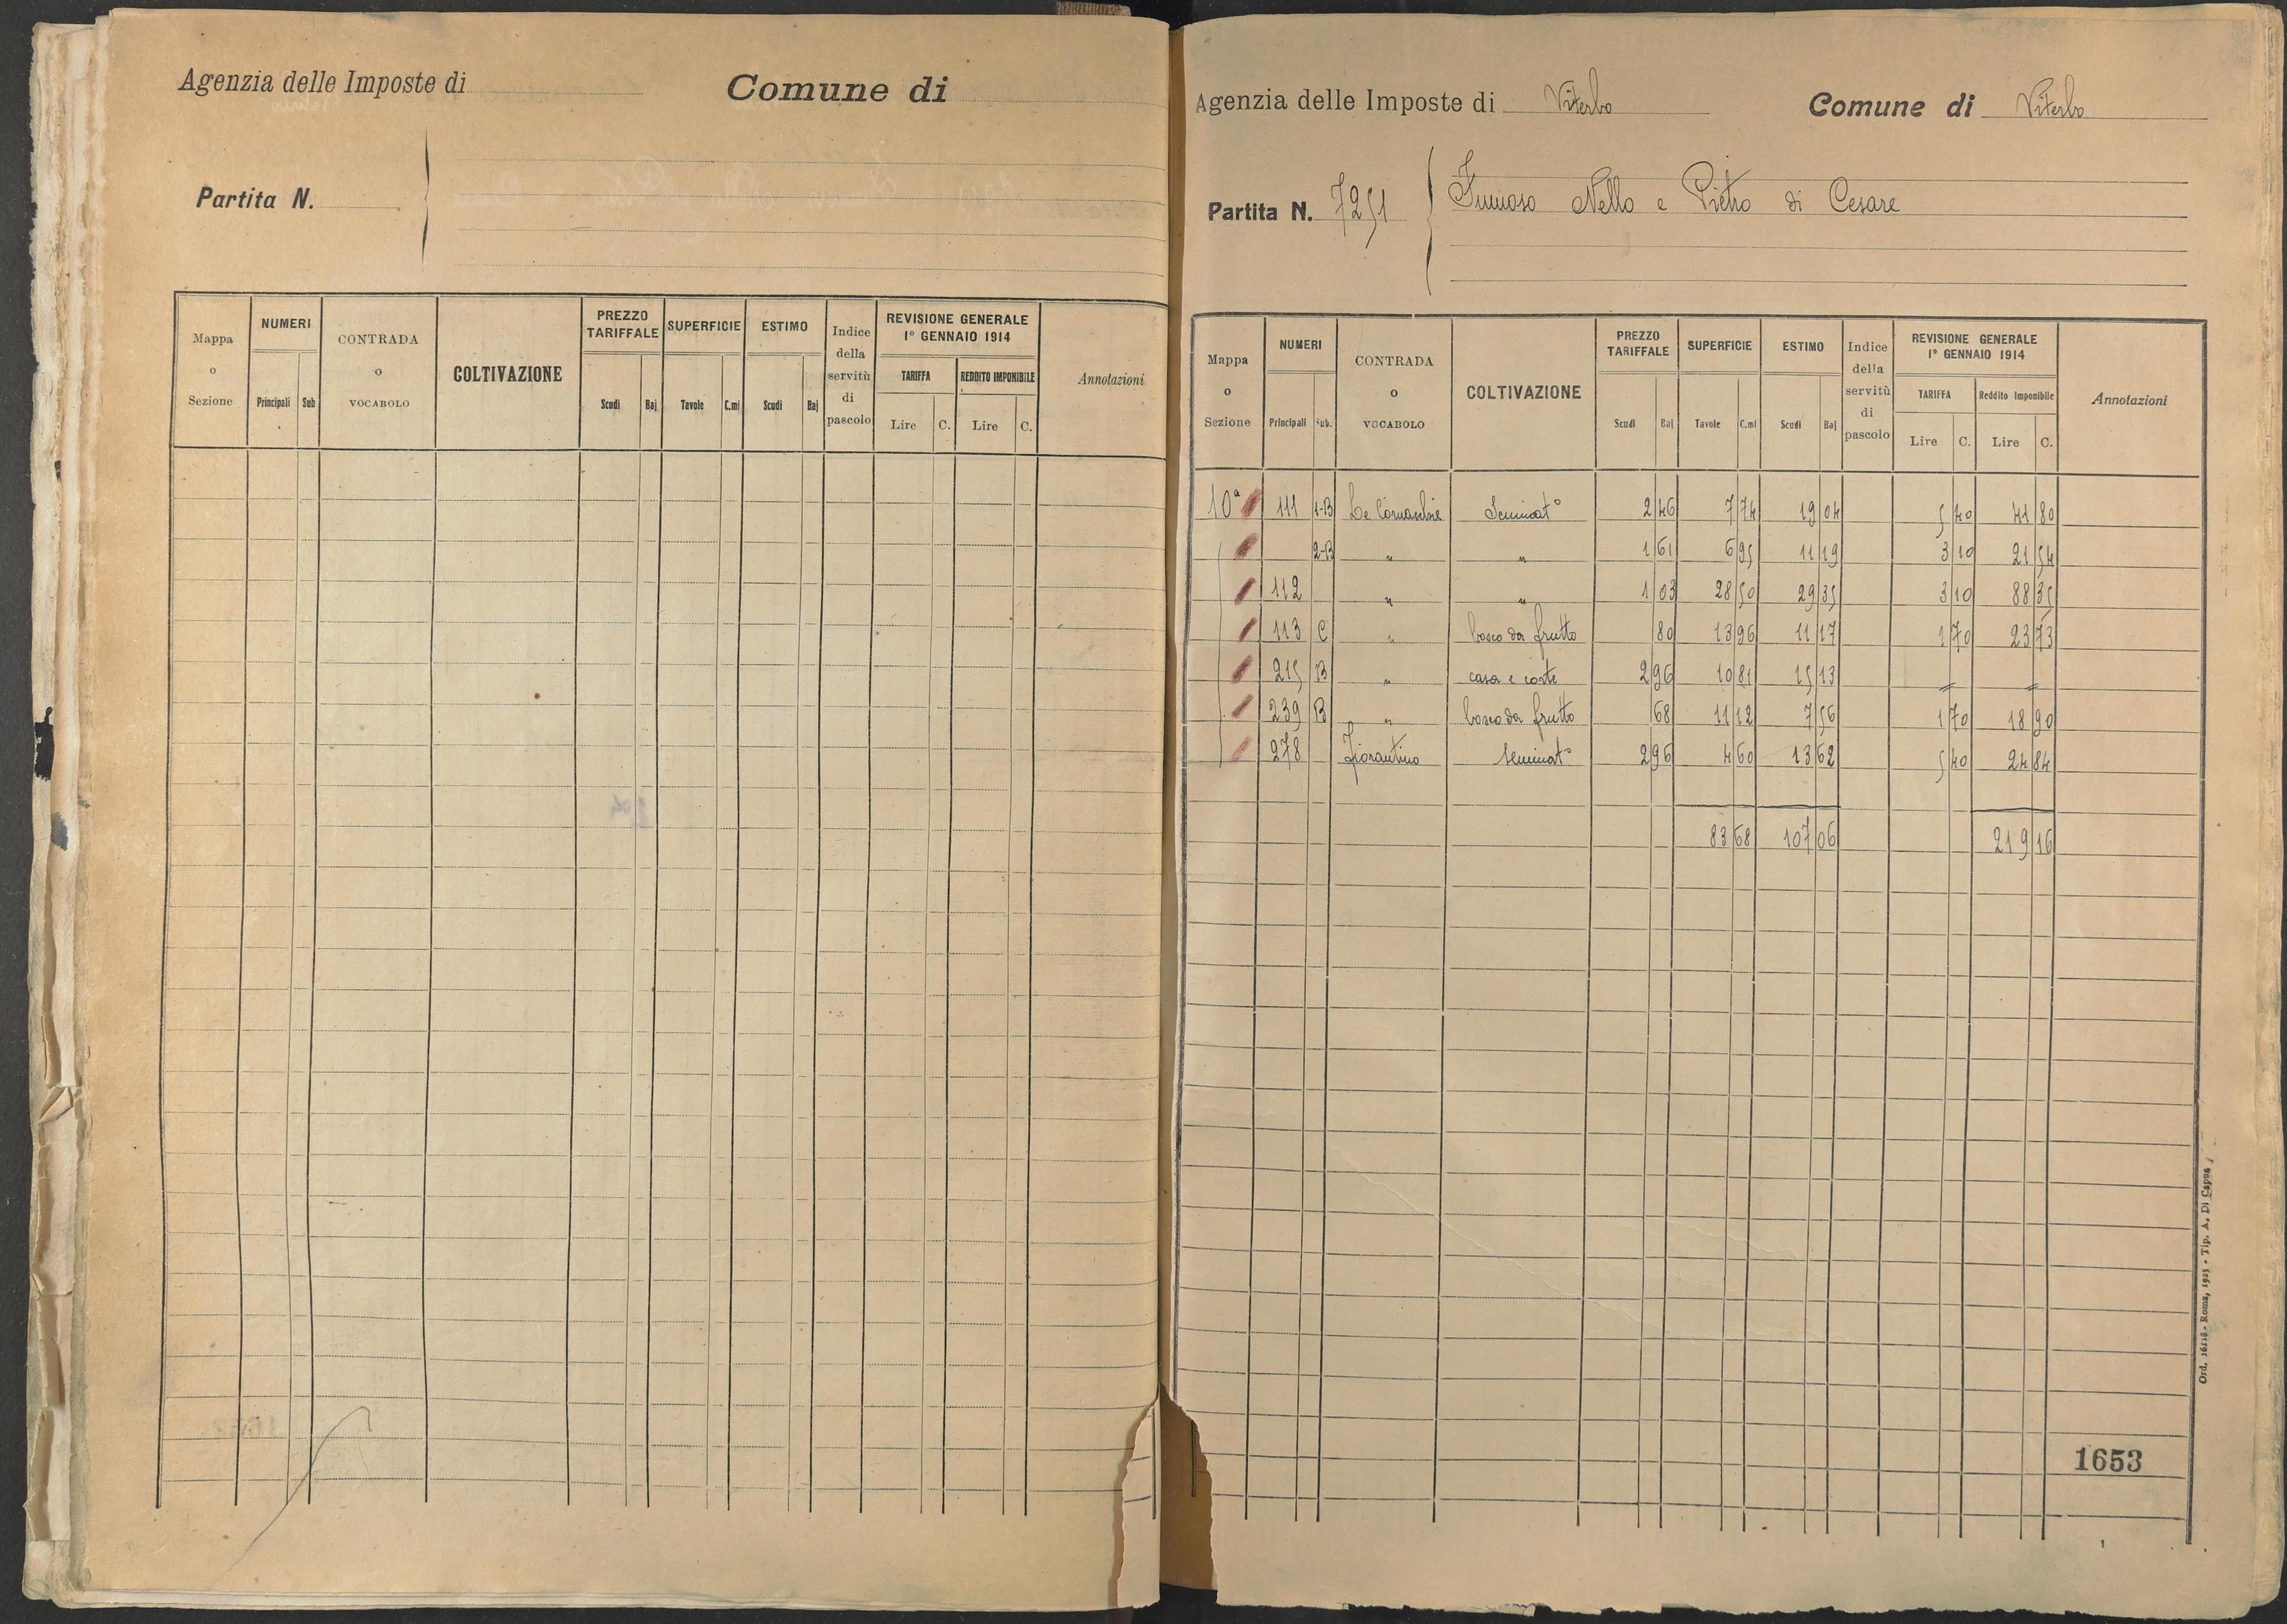 Agenzia delle Imposte di
Comune di
Partita N.
Mappa o Sezione | NUMERI Principali Sub | CONTRADA o VOCABOLO | COLTIVAZIONE | PREZZO TARIFFALE Scudi Baj | SUPERFICIE Tavole C.mi | ESTIMO Scudi Baj | Indice della servitù di pascolo | REVISIONE GENERALE 1° GENNAIO 1914 TARIFFA Lire C. REDDITO IMPONIBILE Lire C. | Annotazioni
Agenzia delle Imposte di Viterbo
Comune di Viterbo
Partita N. 7251
Nello e Pietro di Cesare
Mappa o Sezione | NUMERI Principali Sub. | CONTRADA o VOCABOLO | COLTIVAZIONE | PREZZO TARIFFALE Scudi Baj | SUPERFICIE Tavole C.mi | ESTIMO Scudi Baj | Indice della servitù di pascolo | REVISIONE GENERALE 1° GENNAIO 1914 TARIFFA Lire C. Reddito Imponibile Lire C. | Annotazioni
10ª 111 1-B Le Seminat° 2 46 7 74 19 04 5 40 41 80
2-B " " 1 61 6 95 11 19 3 10 21 54
112 " " 1 03 28 50 29 35 3 10 88 35
113 C " bosco da frutto 80 13 96 11 17 1 70 23 73
215 B " casa e corte 2 96 10 81 15 13 " "
239 B " bosco da frutto 68 11 12 7 56 1 70 18 90
278 Fiorantino Seminat° 2 96 4 60 13 62 5 40 24 84
83 68 107 06 219 16
Ord. 16118 - Roma, 1923 - Tip. A. Di Capua
1653